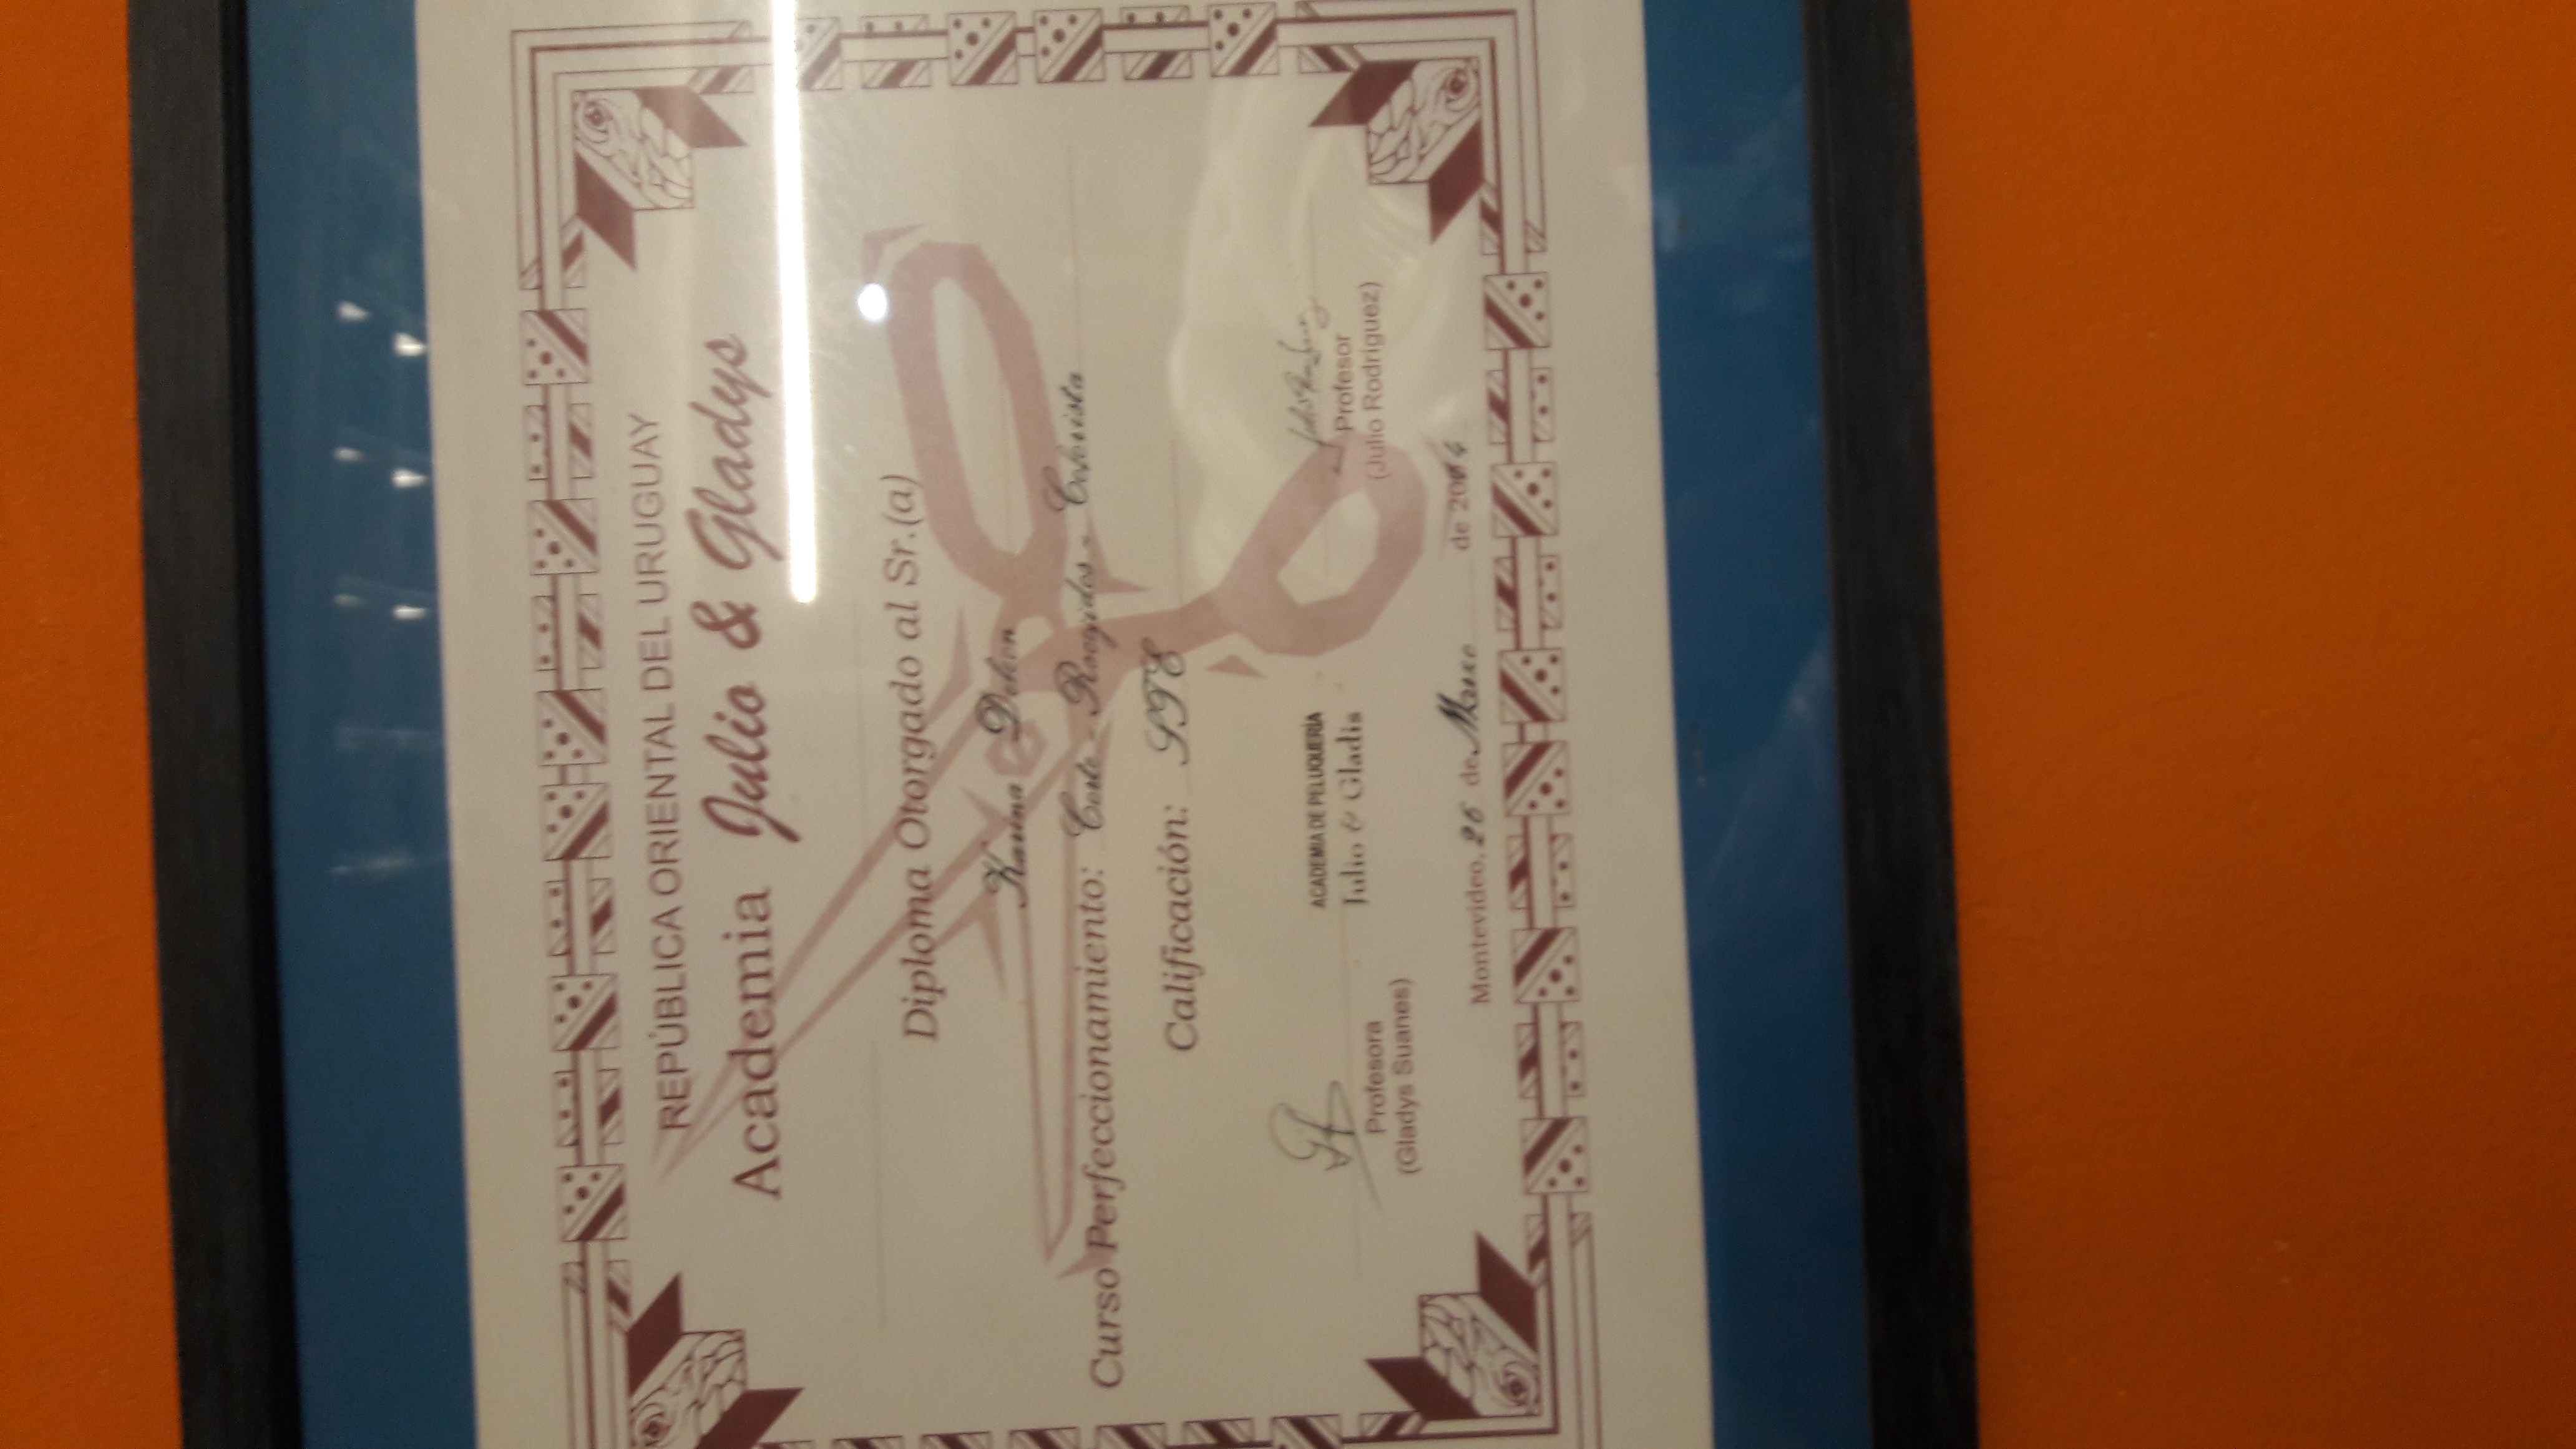 REPÚBLICA ORIENTAL DEL URUGUAY
Academia Julio & Gladys
Diploma Otorgado al Sr.(a)
Karina Deleon
Curso Perfeccionamiento: Corte - Recogidos - Colorista
Calificación: STE
ACADEMIA DE PELUQUERÍA
Julio & Gladis
Profesora
(Gladys Suanes)
Profesor
(Julio Rodriguez)
Montevideo, 26 de Marzo de 2014